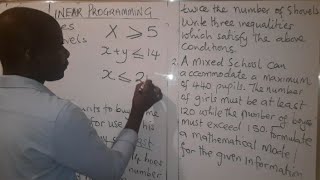 LINEAR PROGRAMMING
x ⩾ 5
x+y ⩽ 14
x ⩽ 2
to buy
for use
twice the number of Shovels
Write three inequalities
which satisfy the above
conditions.
2. A mixed School can
accommodate a maximum
of 440 pupils. The number
of girls must be at least
120 while the number of boys
must exceed 150. formulate
a mathematical model
for the given information